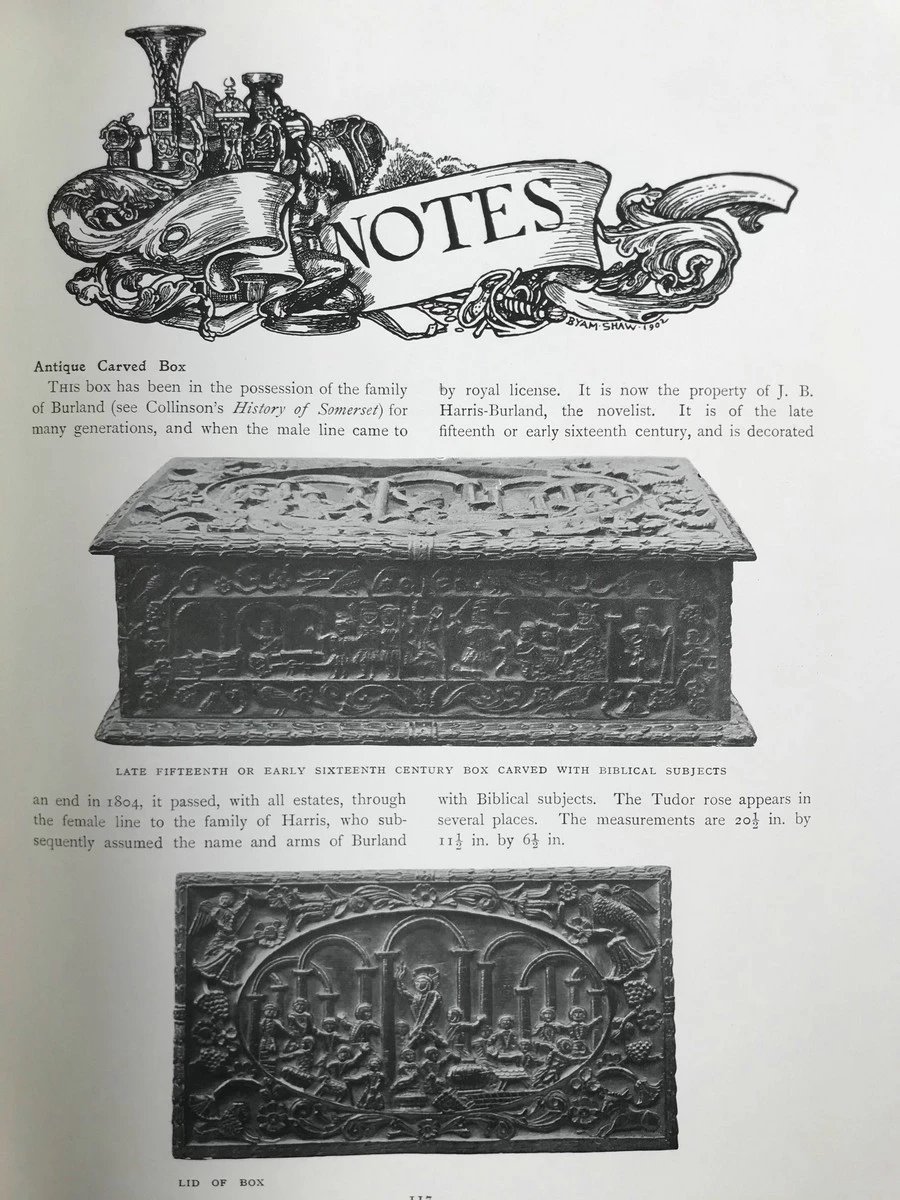 NOTES
BYAM·SHAW·1902
Antique Carved Box
THIS box has been in the possession of the family
of Burland (see Collinson's History of Somerset) for
many generations, and when the male line came to
an end in 1804, it passed, with all estates, through
the female line to the family of Harris, who sub-
sequently assumed the name and arms of Burland
by royal license. It is now the property of J. B.
Harris-Burland, the novelist. It is of the late
fifteenth or early sixteenth century, and is decorated
with Biblical subjects. The Tudor rose appears in
several places. The measurements are 20½ in. by
11½ in. by 6½ in.
LATE FIFTEENTH OR EARLY SIXTEENTH CENTURY BOX CARVED WITH BIBLICAL SUBJECTS
LID OF BOX